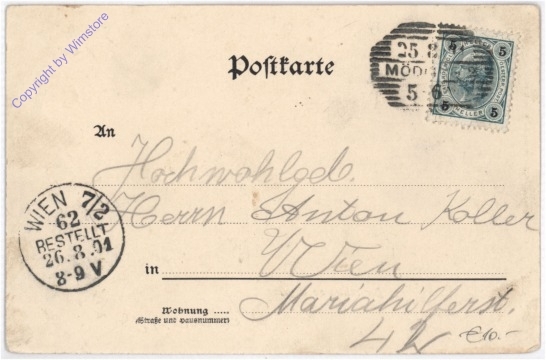 Copyright by Wimstore
Postkarte
25 8
MÖD
5-6
5 5
HELLER
5 5
An
Hochwohlgeb.
Herrn Anton Koller
WIEN 7/2
62
BESTELLT
26.8.01
8-9 V
in Wien
Wohnung
(Straße und Hausnummer)
Mariahilferst.
€10.-